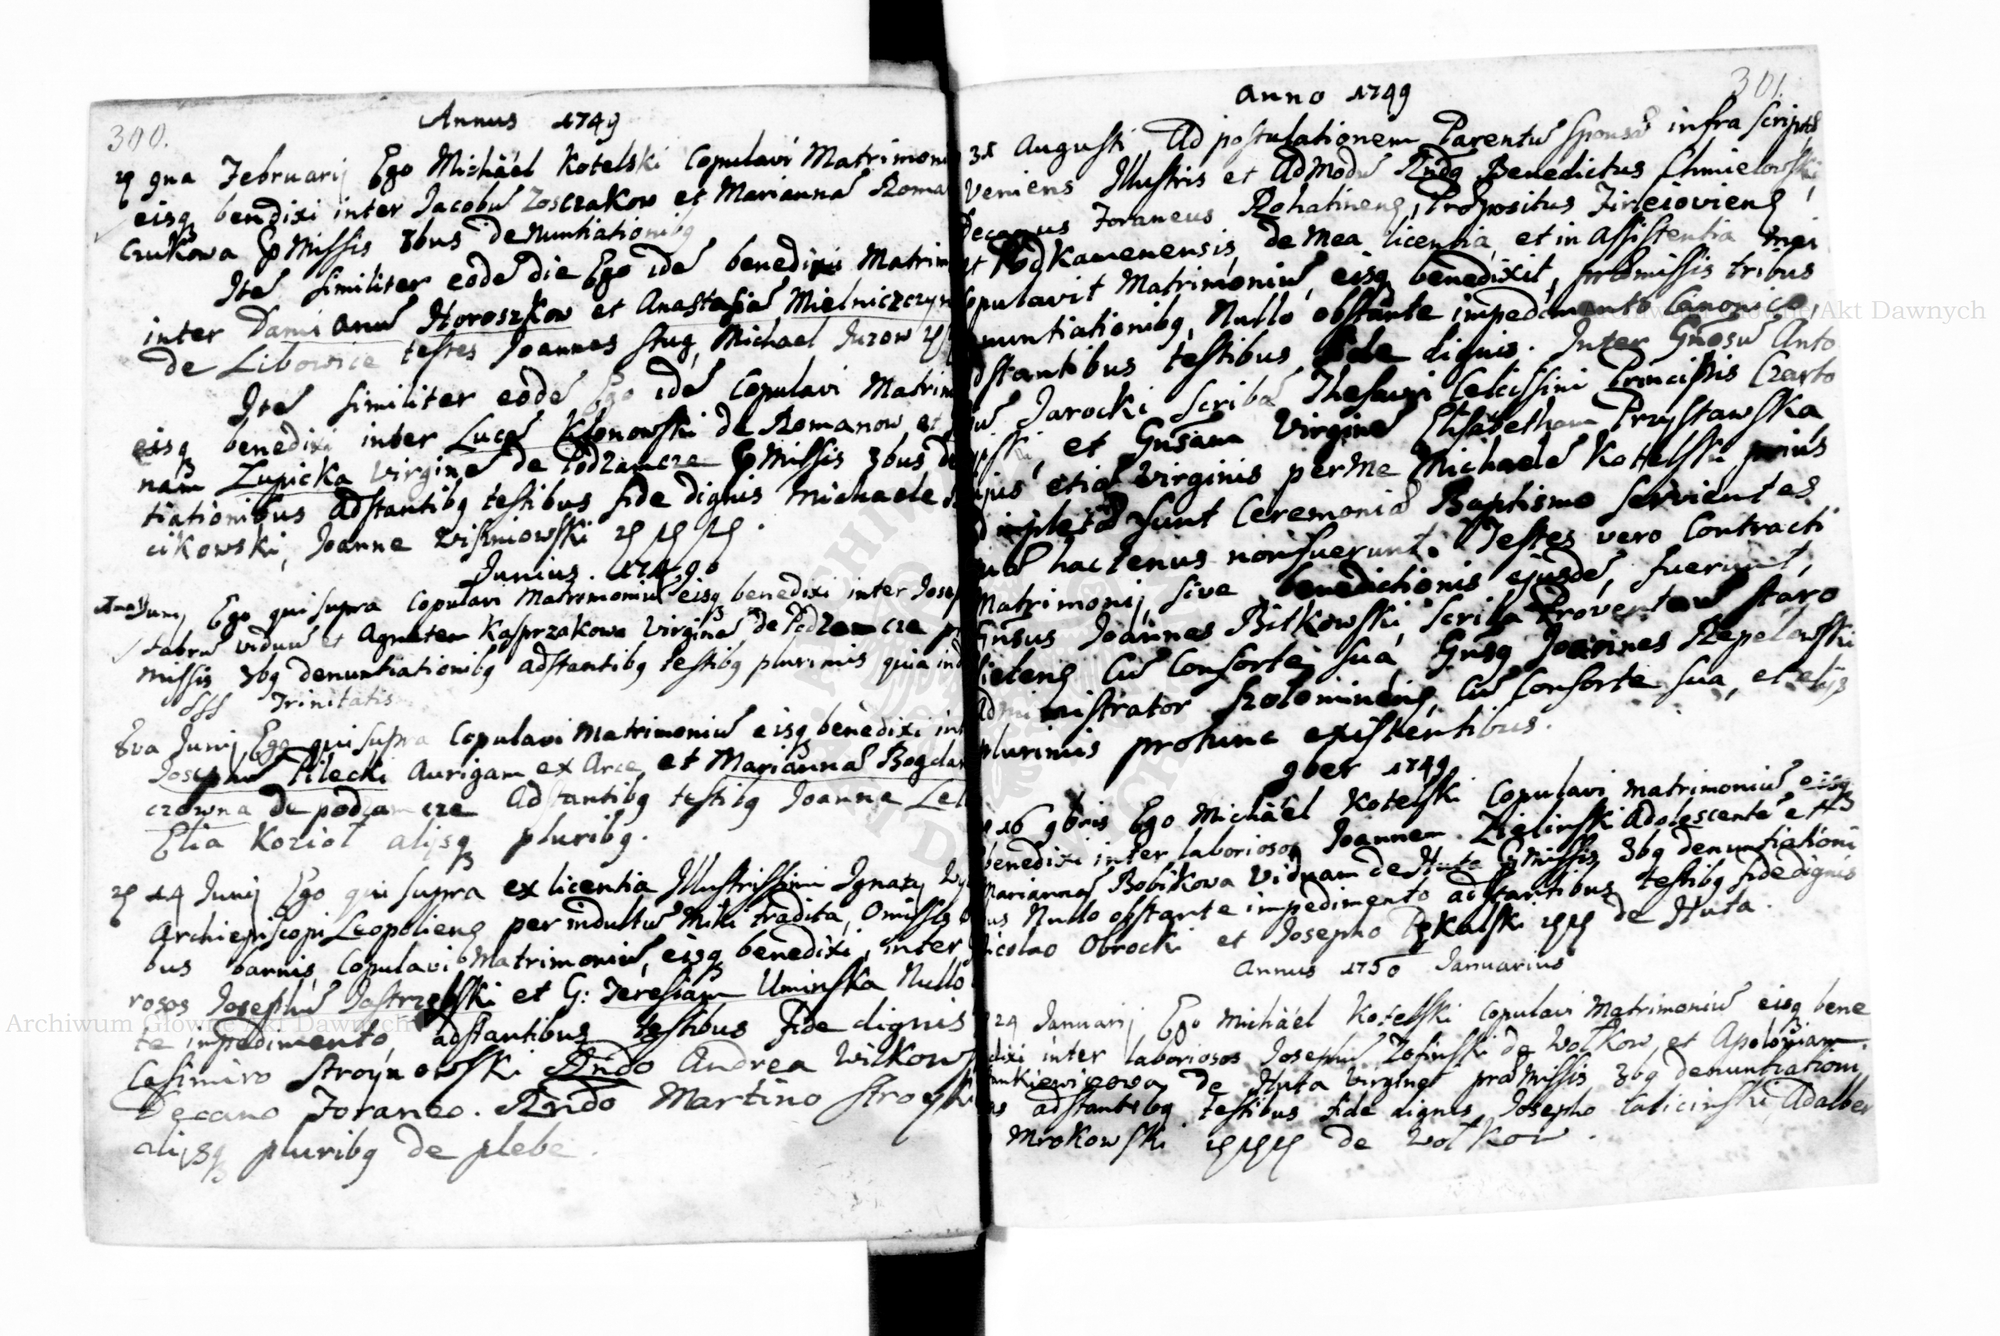 300.
Annus 1749
9na Februarij Ego Michäel Kotelski Copulavi Matrimoni
eisq bendixi inter Jacobū Zosczakow et Mariannā Roma
czukowa missis 3bus denuntiationibq
Itē similiter eodē die Ego idē benedixi Matrim
inter Damianū Horoszkow et Anastasiā Mielniczczyn
de Libowice testes Joannes Stug, Michael Juzow
Itē similiter eodē Ego idē Copulavi Matrim
eisq benedixi inter Lucā Klonowski de Romanow et
nam Zupicka Virginē de Podzamcze missis 3bus de
tiationibus adstantibq testibus fide dignis Michaele
cikowski, Joanne Wisniowski
Junius. 1749
Junij Ego qui supra Copulavi Matrimoniū eisq benedixi inter Josep
Fabrū viduū et Agnetem Kasprzakowa Virginē de Podzamcze
missis 3bq denuntiationibq adstantibq testibq plurimis quia in
SSS Trinitatis
8va Junij Ego qui supra Copulavi Matrimoniū eisq benedixi int
Josephū Pilecki Aurigam ex Arce, et Mariannā Bogdan
czowna de podzamcze Adstantibq testibq Joanne Lel
Elia Koziot alijsq pluribq.
14 Junij Ego qui supra ex licentia Illustrissimi Ignatij
Archiepiscopi Leopolieng per indultū Mihi tradita, Omissis
bus bannis, Copulavi Matrimoniū, eisq benedixi, inter
rosos Josephū Jastrzębski et G: Teresiam Uminska Nullo
te impedimento, adstantibus testibus fide dignis
Casimiro Stroynowski Rndo Andrea Wilkow
Decano Foraneo. Rndo Martino Stroy
alijsq pluribq de plebe.
301.
Anno 1749
31 Augusti, Ad postulationem Parentū Sponsā infra scripta
Veniens Illustris et Admodū Rndq Benedictus Chmielowski
Decanus Foraneus Rohatineng, Propositus Firleiovieng,
et Podkamenensis, de mea licentia, et in Assistentia mei
Copulavit Matrimoniū, eisq benedixit, prāmissis tribus
nuntiationibq, Nullo obstante impedimento Canonico,
adstantibus testibus fide dignis. Inter Gnosū Anto
Jarocki Scribā Thesauri Celcissimi Principis Czarto
et Gnsam Virginē Elisabetham Przystawska
etiā Virginis per me Michaelē Kotelski prius
impletā sunt Ceremoniā Baptismo servientes
hactenus non fuerunt. Testes vero Contracti
Matrimonij, sive benedictionis ejusdē, fuerunt,
Gnsus Joannes Bilkowski, Scriba Proventuū Staro
Cū Consorte suā, Gnsq Joannes Rzepelowski
Administrator Cū Consorte sua, et alijs
plurimis protunc existentibus.
9ber 1749
16 9bris Ego Michäel Kotelski Copulavi matrimoniū eisq
benedixi inter laboriosos Joannem Zielinski Adolescentē et
Mariannā Bobikowa Viduam de Huta missis 3bq denuntiationi
bus Nullo obstante impedimento adstantibus testibq fide dignis
Nicolao Obrocki et Josepho Pękalski de Huta.
Annus 1750 Januarius
24 Januarij Ego Michäel Kotelski Copulavi Matrimoniū eisq bene
dixi inter laboriosos Josephū Zosinski de Wolkow, et Apoloniam
de Huta Virginē prāmissis 3bq denuntiationi
adstantibq testibus fide dignis, Josepho Calicinski, Adalber
Mrokowski de Wolkow.
Archiwum Główne Akt Dawnych
Archiwum Główne Akt Dawnych